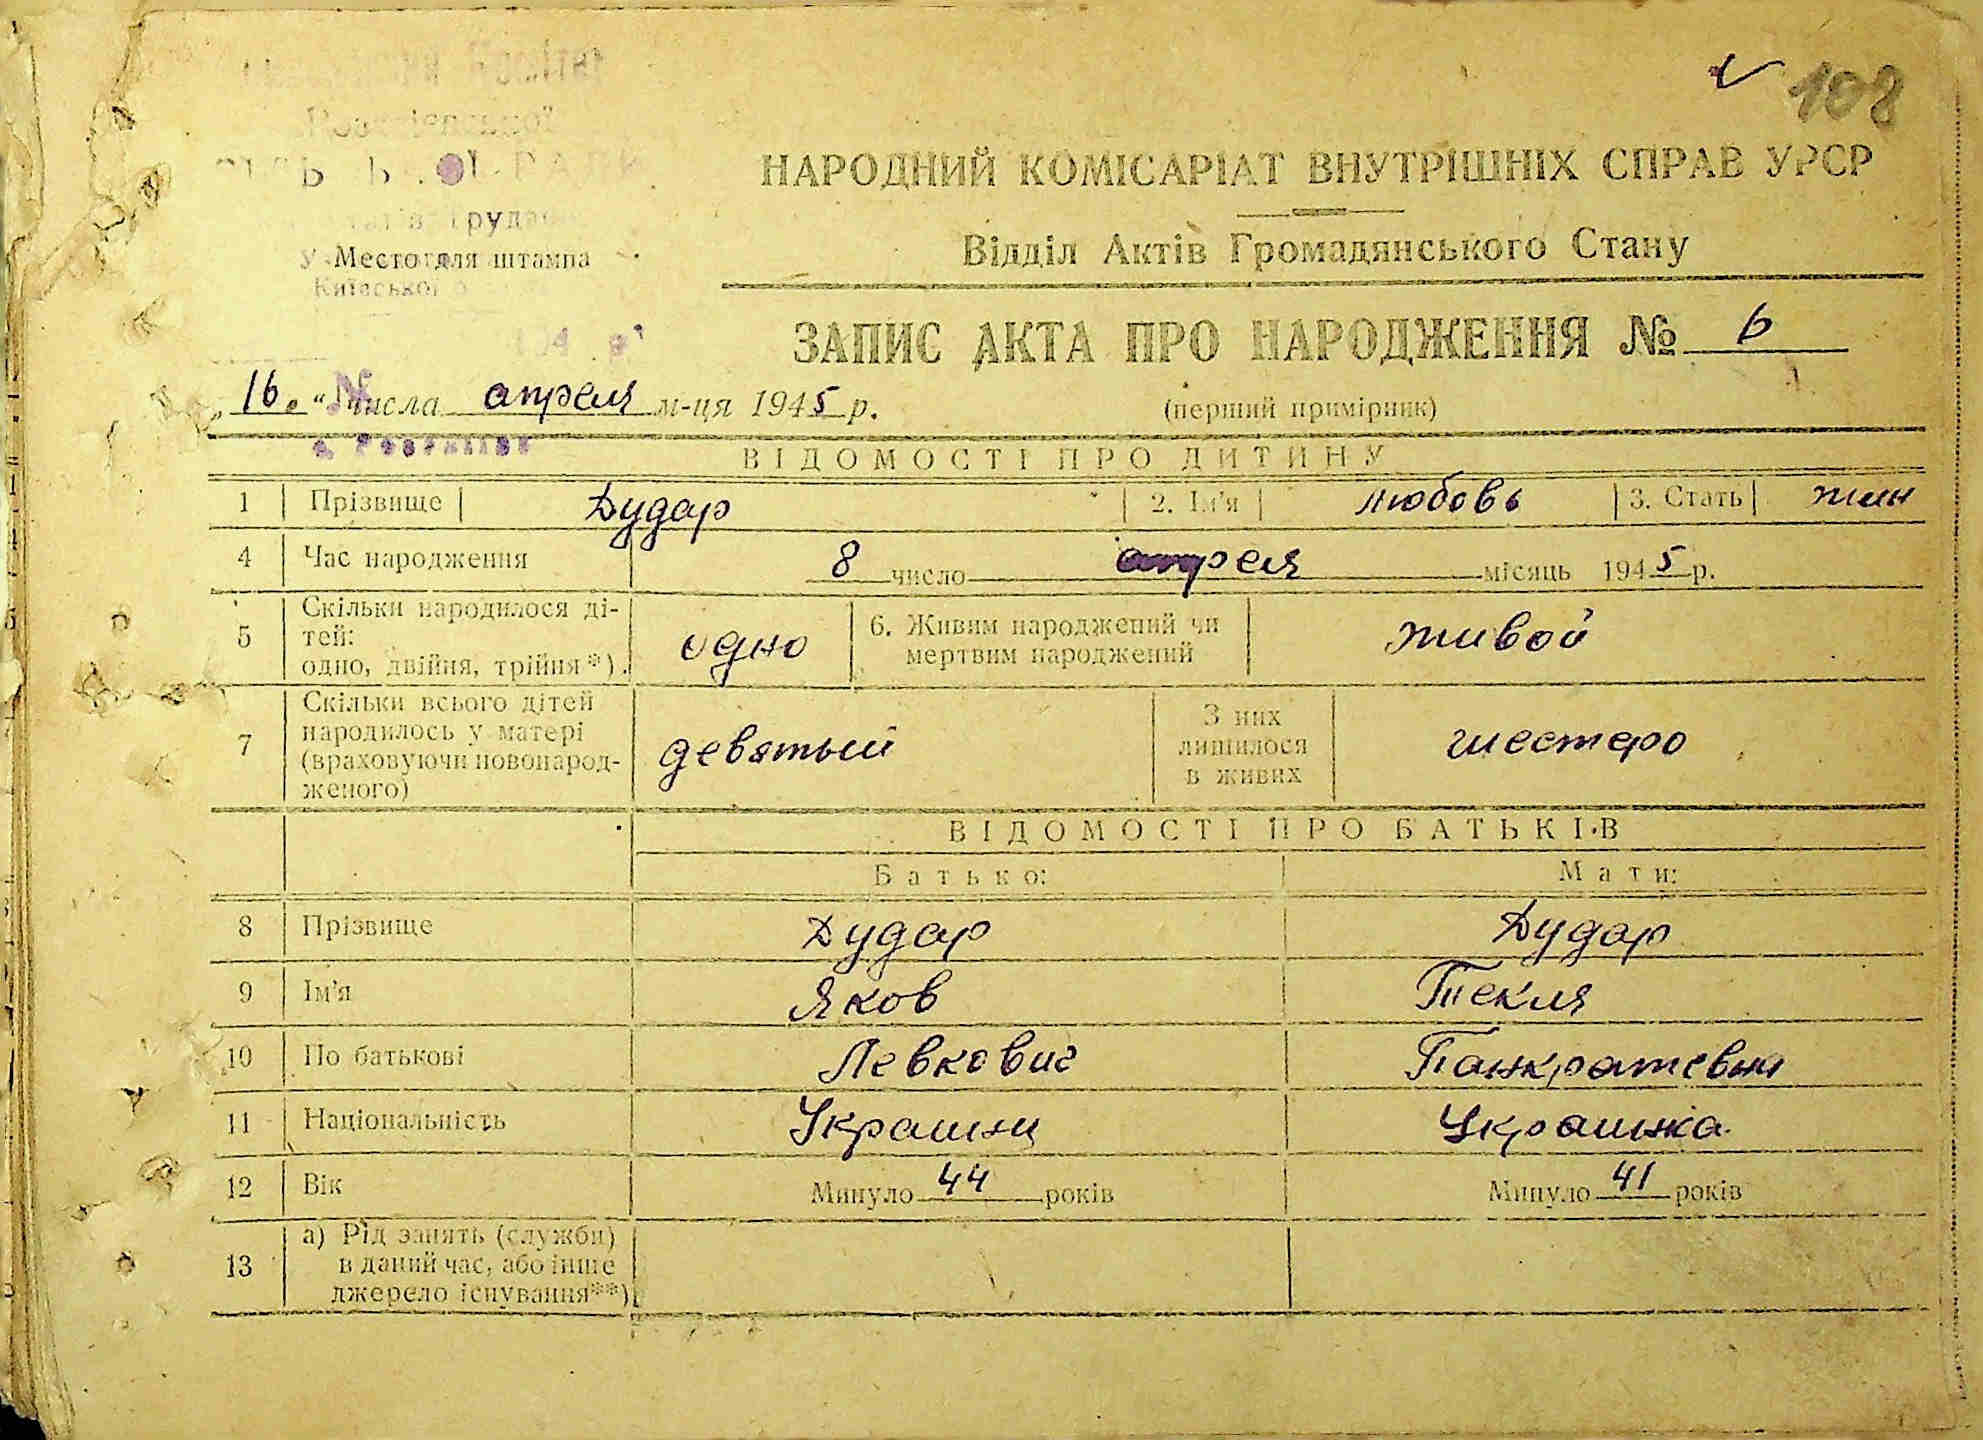 108
НАРОДНИЙ КОМІСАРІАТ ВНУТРІШНІХ СПРАВ УРСР
Відділ Актів Громадянського Стану
Место для штампа
Київської
ЗАПИС АКТА ПРО НАРОДЖЕННЯ № 6
„16“ числа апреля м-ця 1945 р.
(перший примірник)
ВІДОМОСТІ ПРО ДИТИНУ
1 Прізвище Дудар 2. Ім'я Любовь 3. Стать жин
4 Час народження 8 число апреля місяць 1945 р.
5 Скільки народилося ді-
тей:
одно, двійня, трійня*). одно 6. Живим народжений чи
мертвим народжений живой
7 Скільки всього дітей
народилось у матері
(враховуючи новонарод-
женого) девятый З них
лишилося
в живих шестеро
ВІДОМОСТІ ПРО БАТЬКІВ
Батько: Мати:
8 Прізвище Дудар Дудар
9 Ім'я Яков Текля
10 По батькові Левкович Панкратевна
11 Національність Украинц Украинка
12 Вік Минуло 44 років Минуло 41 років
13 а) Рід занять (служби)
в даний час, або інше
джерело існування**)